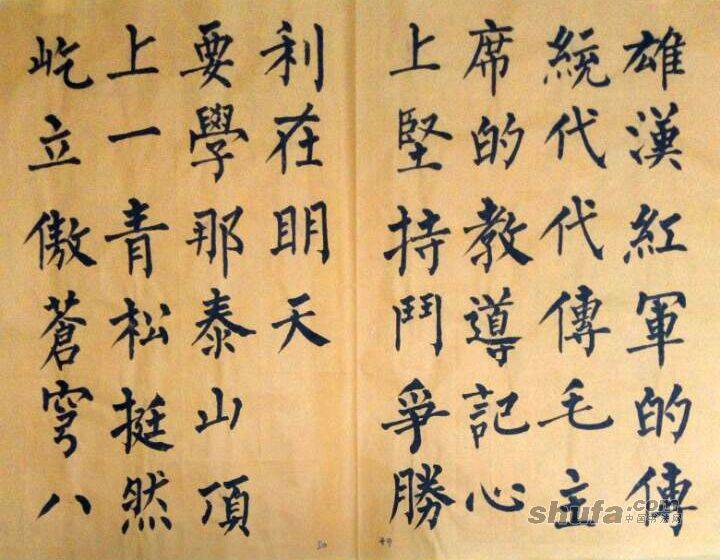 雄漢紅軍的傳
統代代傳毛主
席的教導記心
上堅持鬥爭勝
利在明天
要學那泰山頂
上一青松挺然
屹立傲蒼穹八
49
50
shufa.com
中国书法网